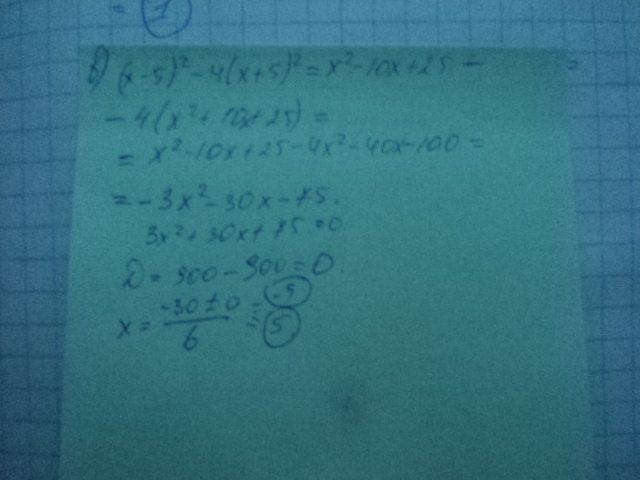 = 1
в) (x-5)² - 4(x+5)² = x² - 10x + 25 - =
- 4(x² + 10x + 25) =
= x² - 10x + 25 - 4x² - 40x - 100 =
= - 3x² - 30x - 75.
3x² + 30x + 75 = 0
D = 900 - 900 = 0.
x = \frac{-30 ± 0}{6} = -5
= 5